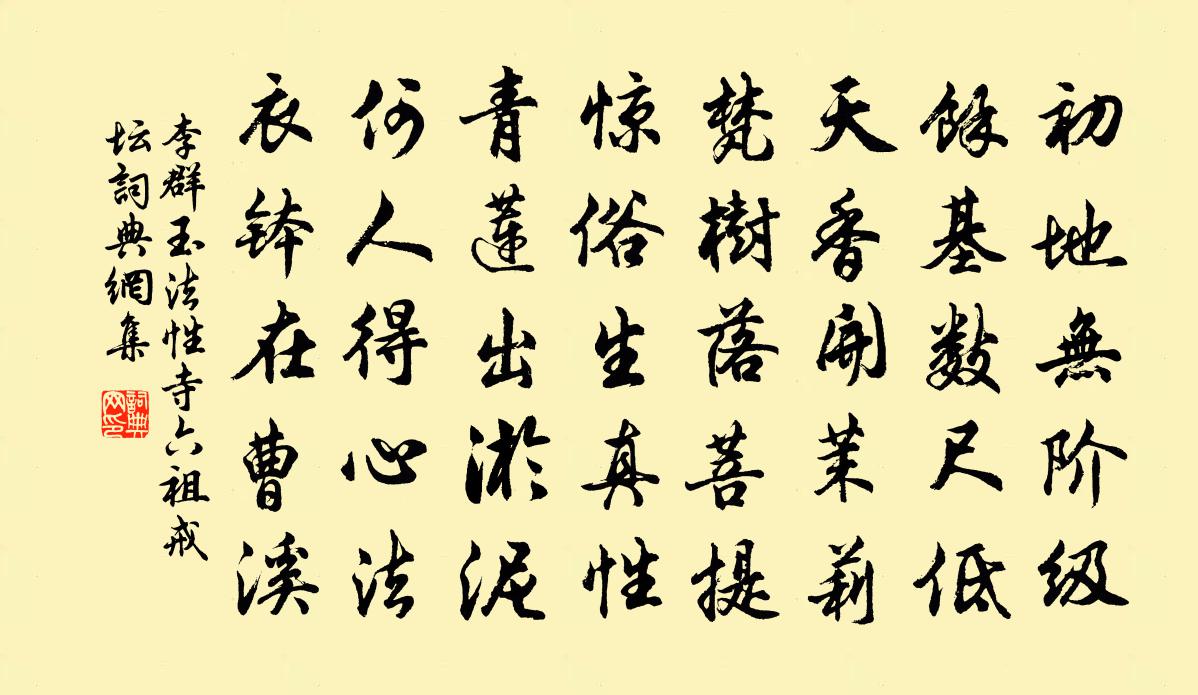 初地無阶级
餘基数尺低
天香開茉莉
梵樹落菩提
惊俗生真性
青蓮出淤泥
何人得心法
衣钵在曹溪
李群玉法性寺六祖戒
坛詞典網集
詞典網印